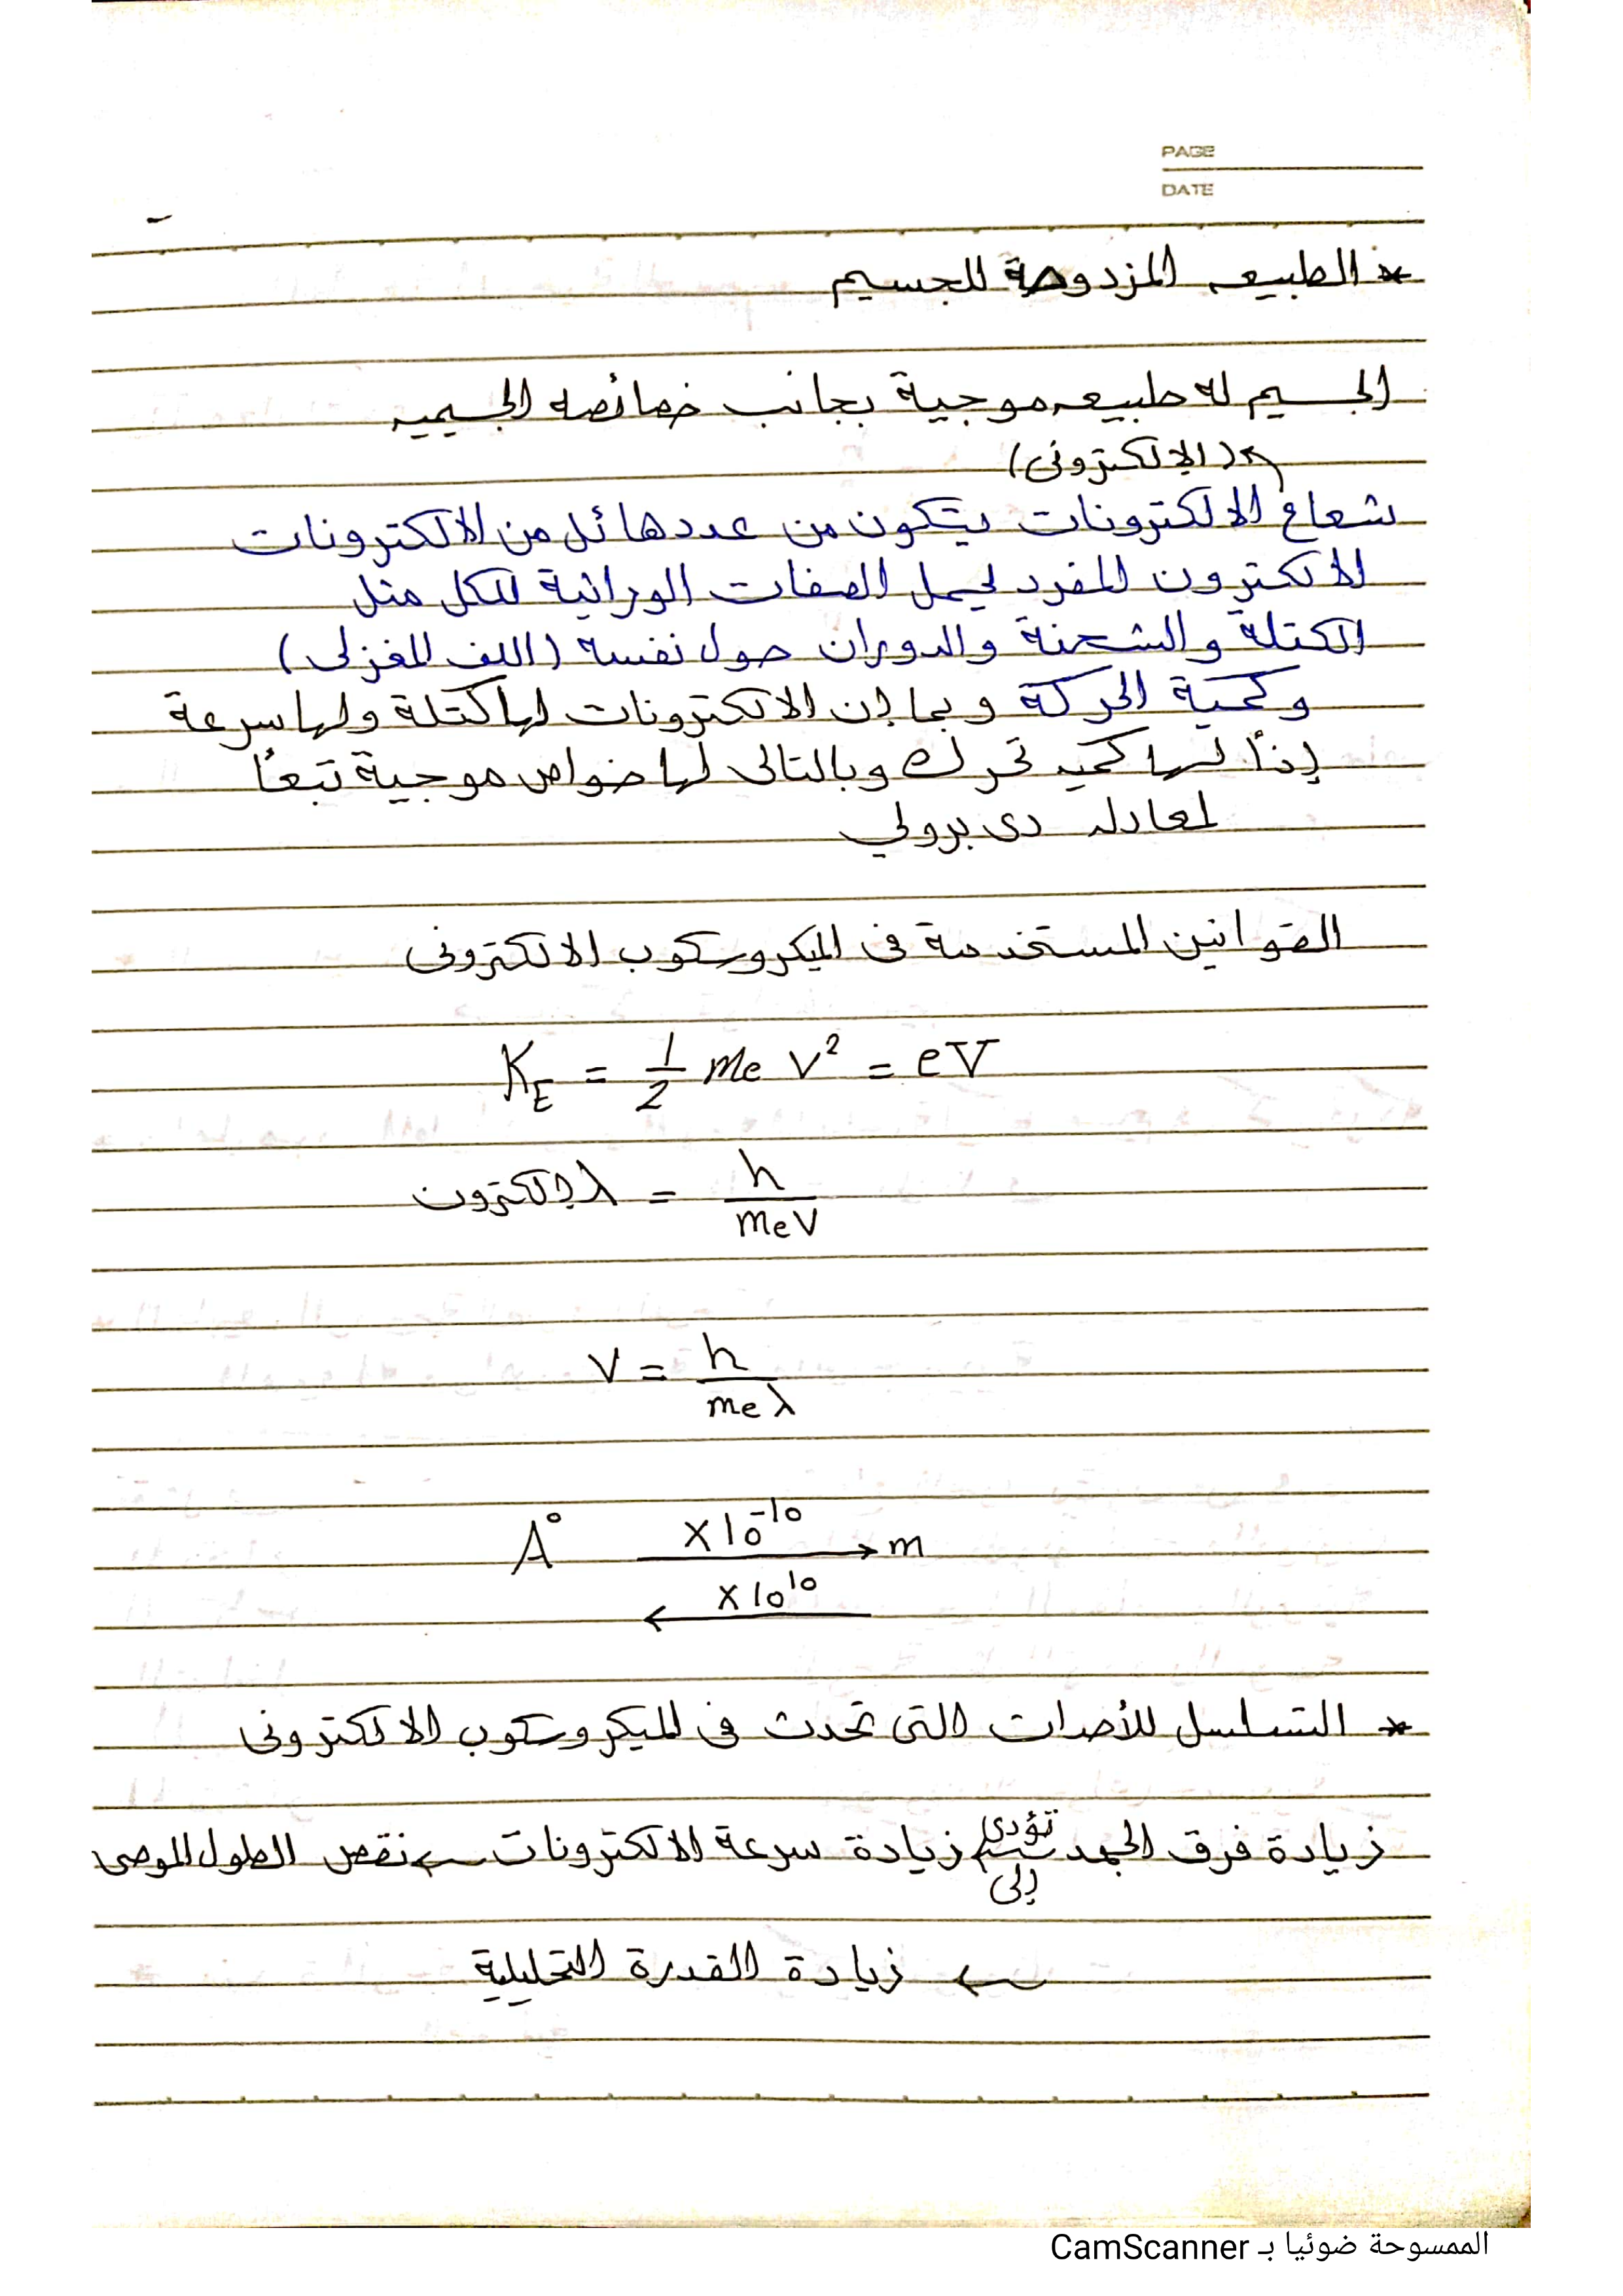 PAGE
DATE
* الطبيعه المزدوجة للجسيم
الجسيم له طبيعه موجية بجانب خصائصه الجسيميه
(الإلكترونى)
شعاع الالكترونات يتكون من عدد هائل من الالكترونات
الالكترون المفرد يحمل الصفات الوراثية للكل مثل
الكتلة والشحنة والدوران حول نفسه (اللف المغزلى)
وكمية الحركة وبما إن الالكترونات لها كتلة ولها سرعة
إذاً لها كميه تحرك وبالتالى لها خواص موجية تبعاً
لمعادله دى برولي
القوانين المستخدمة فى الميكروسكوب الالكترونى
K_E = 1/2 me v² = eV
λإلكترون = h / meV
V = h / me λ
A° ×10⁻¹⁰ → m
← ×10¹⁰
* التسلسل للأحداث التى تحدث فى الميكروسكوب الالكترونى
زيادة فرق الجهد تؤدى إلى زيادة سرعة الالكترونات ← نقص الطول الموجى
← زيادة القدرة التحليلية
الممسوحة ضوئيا بـ CamScanner